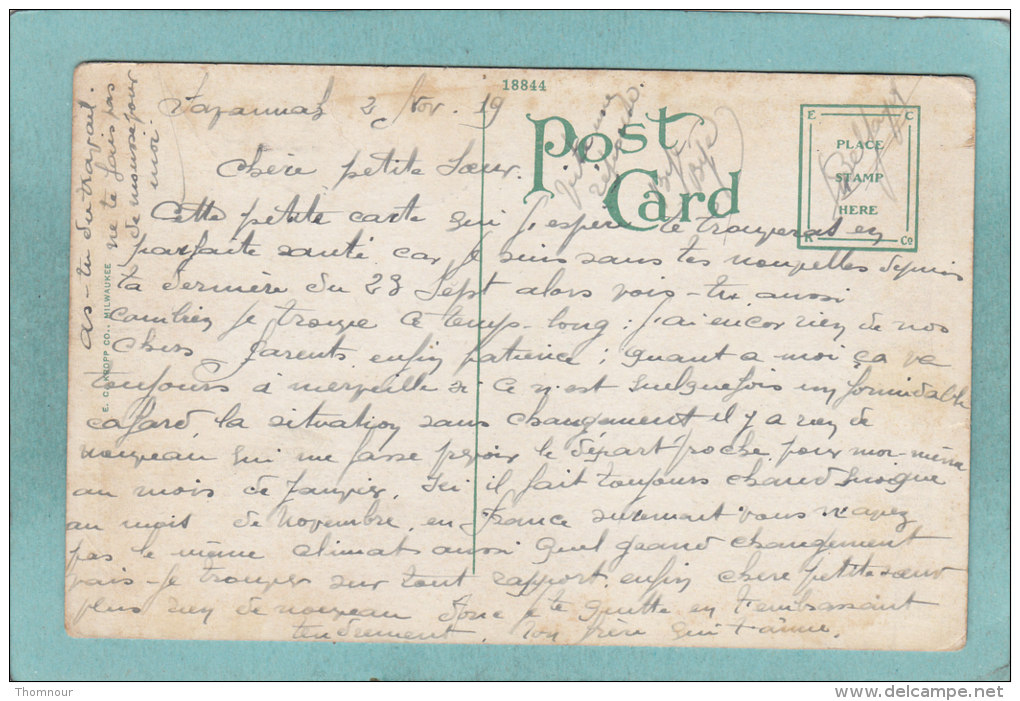 18844
Savannah 2 Nov. 19
POST CARD
PLACE
STAMP
HERE
E C
K Co
Chère petite Sœur.
Cette petite carte qui j'espère te trouveras en
parfaite santé car je suis sans tes nouvelles depuis
ta dernière du 23 Sept alors vois-tu aussi
combien je trouve ce temps-long : j'ai encor rien de nos
chers Parents enfin patience ; quant a moi ça va
toujours à merveille si ce n'est quelquefois un formidable
cafard, la situation sans changement il y a rien de
nouveau qui me fasse prevoir le départ proche, pour moi-même
au mois de Janvier. Ici il fait toujours chaud quoique
au mois de Novembre, en France surement vous n'avez
pas le même climat aussi quel grand changement
vais-je trouver sur tout rapport. enfin chère petite sœur
plus rien de nouveau donc je te quitte en t'embrassant
tendrement. Ton frère qui t'aime.
as-tu du travail.
ne te fais pas
de mousse pour
moi.
E. C. KROPP CO., MILWAUKEE
Thomnour
www.delcampe.net